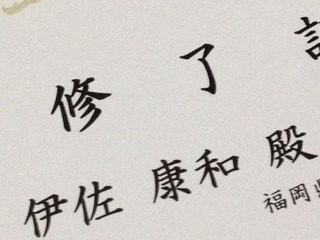 修了証
伊佐 康和 殿
福岡県